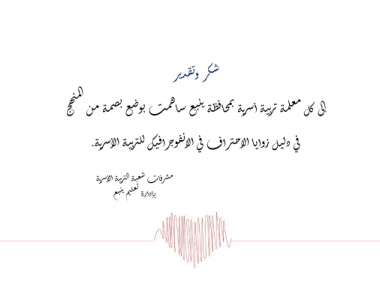 شكر وتقدير
الى كل معلمة تربية أسرية بمحافظة ينبع ساهمت بوضع بصمة من المنهج
في دليل زوايا الاحتراف في الانفوجرافيك للتربية الأسرية.
مشرفات شعبة التربية الأسرية
بإدارة تعليم ينبع